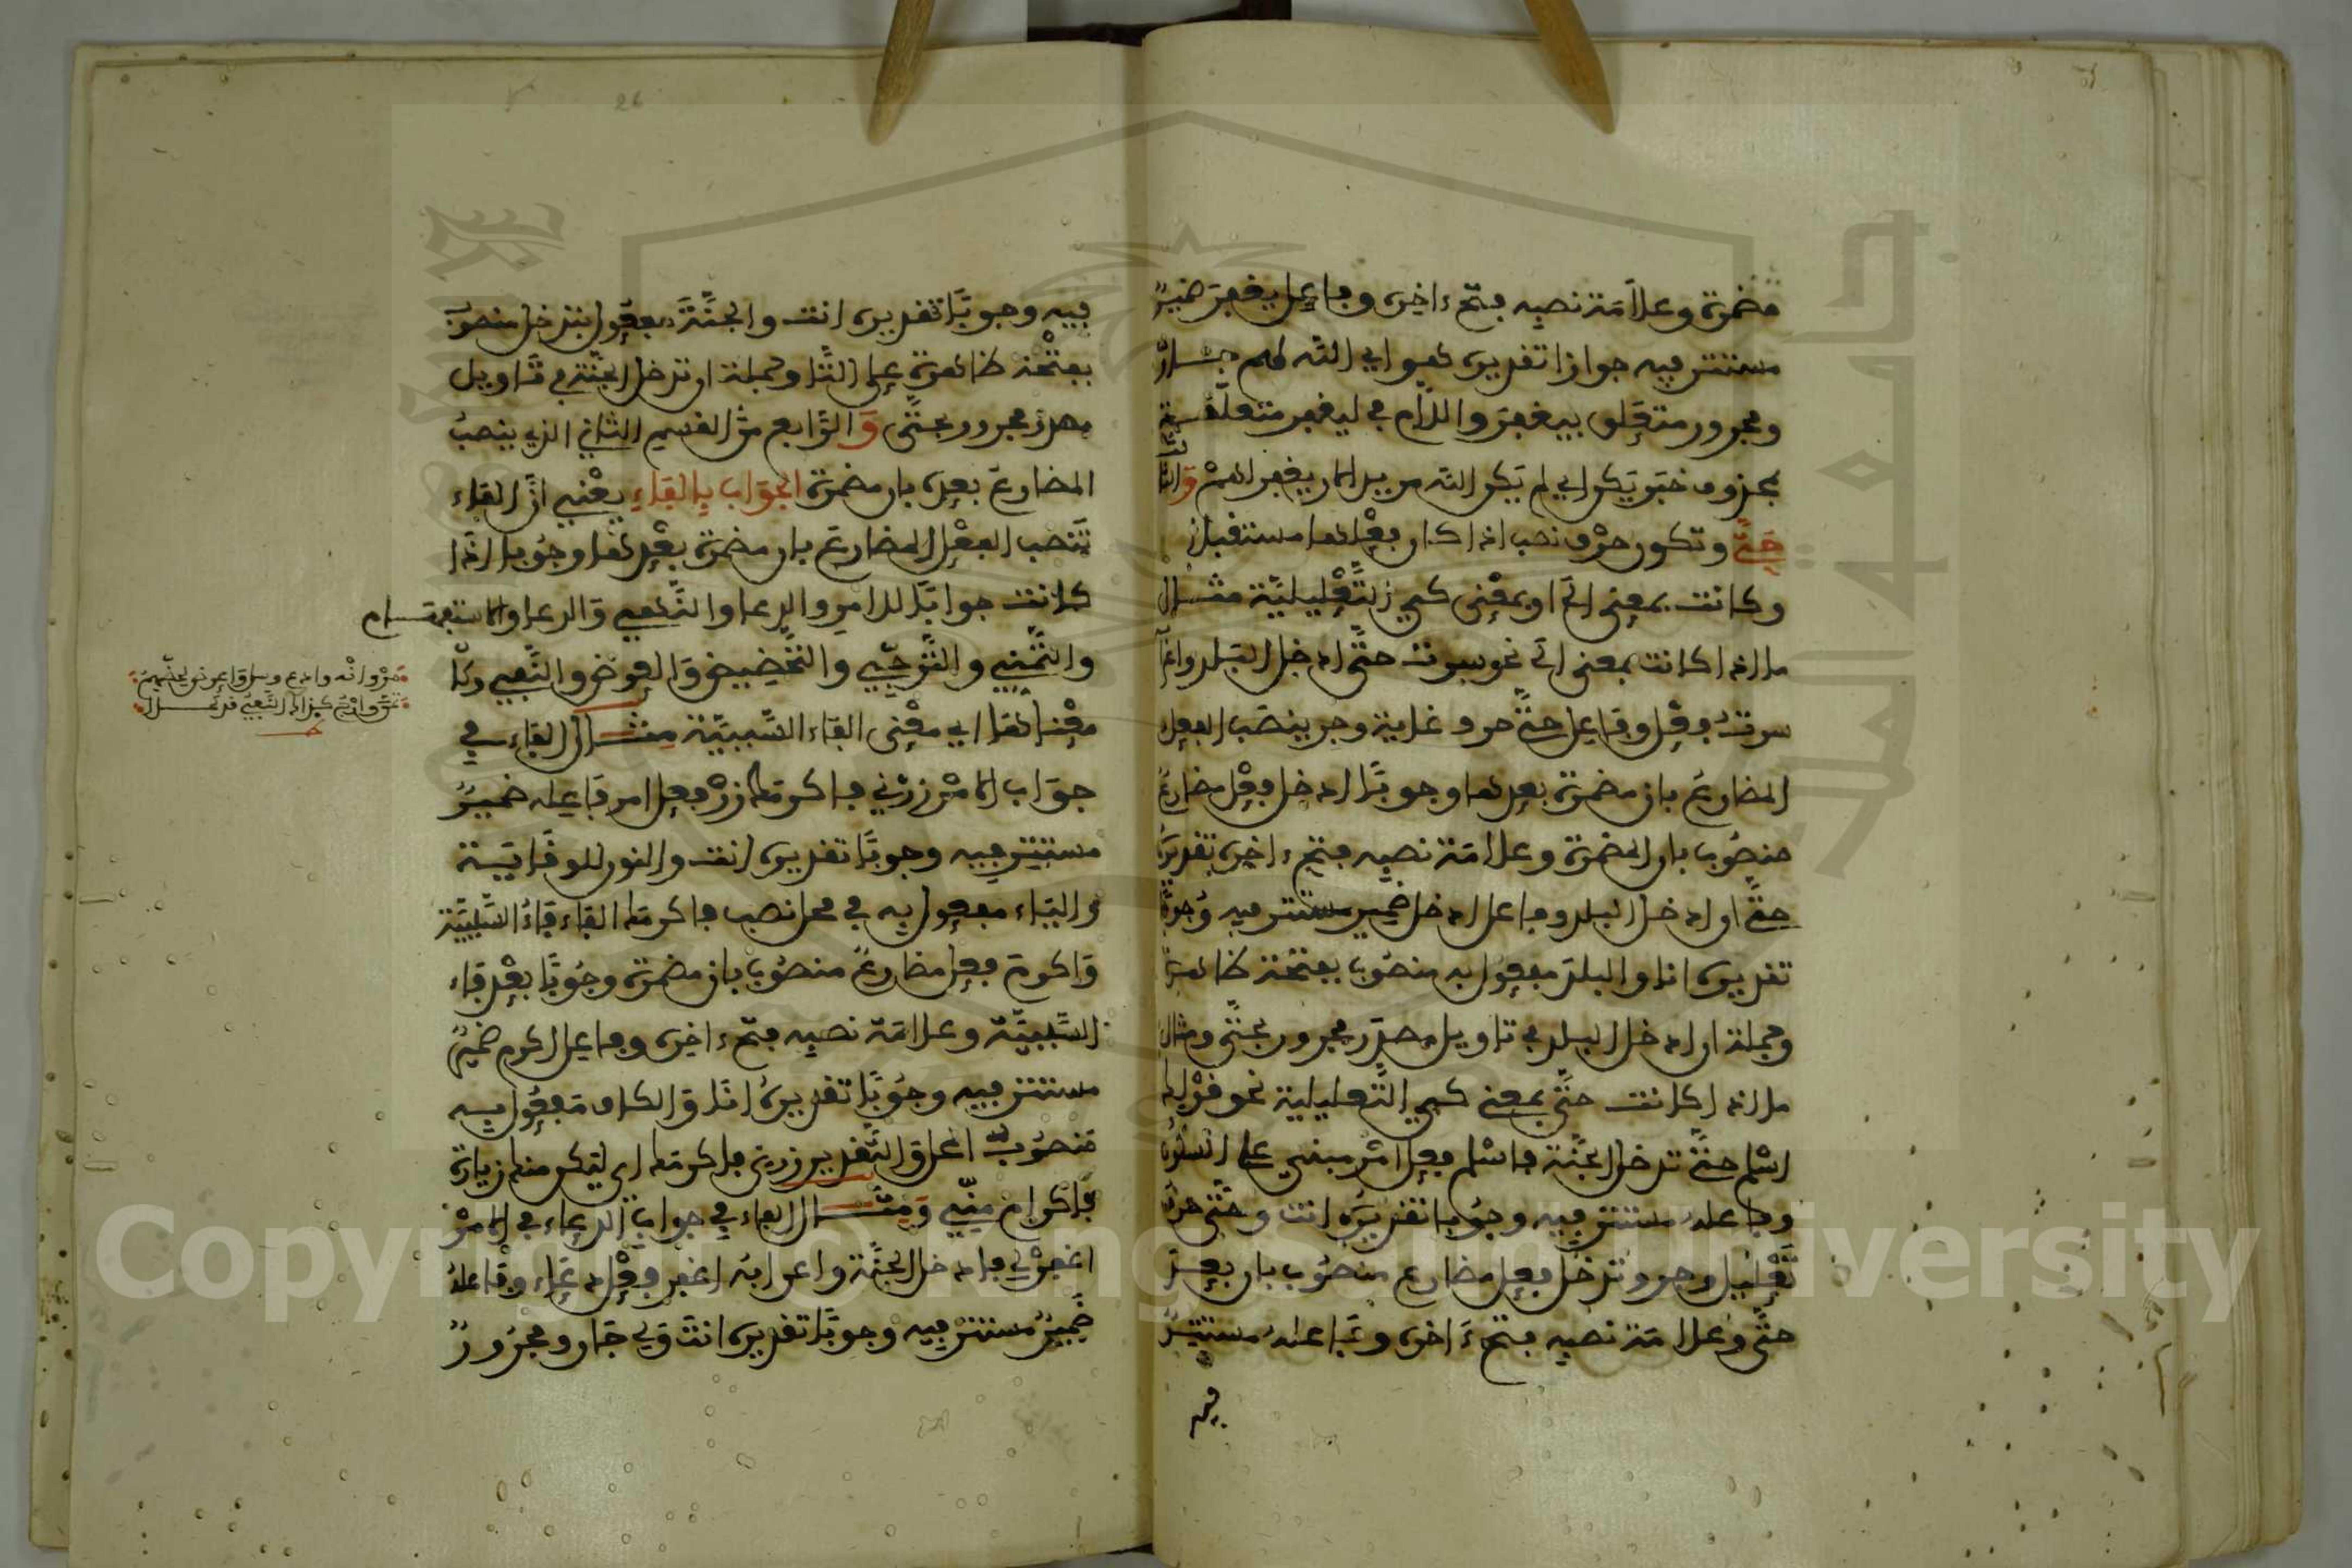 مضمرة وعلامة نصبه فتح ءاخره وفاعل يغفر ضمير
مستتر فيه جوازا تقديره هو اي الله لهم جار
ومجرور متعلق بيغفر واللام في ليغفر متعلقة
بمحذوف خبر يكن اي لم يكن الله مريدا لان يغفر لهم والثالث
حتى وتكون حرف نصب اذا كان فعلها مستقبلا
وكانت بمعنى الى او بمعنى كي التعليلية مثال
ما اذا كانت بمعنى الى نحو سرت حتى ادخل البلد واعرابه
سرت فعل وفاعل حتى حرف غاية وجر ينصب الفعل
المضارع بان مضمرة بعدها وجوبا ادخل فعل مضارع
منصوب بان المضمرة وعلامة نصبه فتح ءاخره تقديره
حتى ان ادخل البلد وفاعل ادخل ضمير مستتر فيه وجوبا
تقديره انا والبلد مفعول به منصوب بفتحة ظاهرة
وجملة ان ادخل البلد في تاويل مصدر مجرور بحتى ومثال
ما اذا كانت حتى بمعنى كي التعليلية نحو قولك
اسلم حتى تدخل الجنة فاسلم فعل امر مبني على السكون
وفاعله مستتر فيه وجوبا تقديره انت وحتى حرف
تعليل وجر وتدخل فعل مضارع منصوب بان بعد
حتى وعلامة نصبه فتح ءاخره وفاعله مستتر
فيه
26
فيه وجوبا تقديره انت والجنة مفعول بتدخل منصوب
بفتحة ظاهرة على التاء وجملة ان تدخل الجنة في تاويل
مصدر مجرور بحتى والرابع من القسم الثاني الذي ينصب
المضارع بعده بان مضمرة الجواب بالفاء يعني ان الفاء
تنصب الفعل المضارع بان مضمرة بعدها وجوبا اذا
كانت جوابا للامر والدعا والنهي والدعا والاستفهام
والتمني والترجي والتحضيض والعرض والنفي وكذا
معناها اي معنى الفاء السببية مثال الفاء في
جواب الامر زرني فاكرمك زر فعل امر فاعله ضمير
مستتر فيه وجوبا تقديره انت والنون للوقاية
والياء مفعول به في محل نصب فاكرمك الفاء فاء السببية
واكرم فعل مضارع منصوب بان مضمرة وجوبا بعد فاء
السببية وعلامة نصبه فتح ءاخره وفاعل اكرم ضمير
مستتر فيه وجوبا تقديره انا والكاف مفعول به
منصوب المحل والتقدير زرني فاكرمك اي ليكن منك زيارة
فاكرام مني ومثال الفاء في جواب الدعاء في الامر
اغفر لي فادخل الجنة واعرابه اغفر فعل دعاء وفاعله
ضمير مستتر فيه وجوبا تقديره انت ولي جار ومجرور
مر وانه وادع وسل واعرض لحضهم
تمن وارج كذاك النفي قد كملا